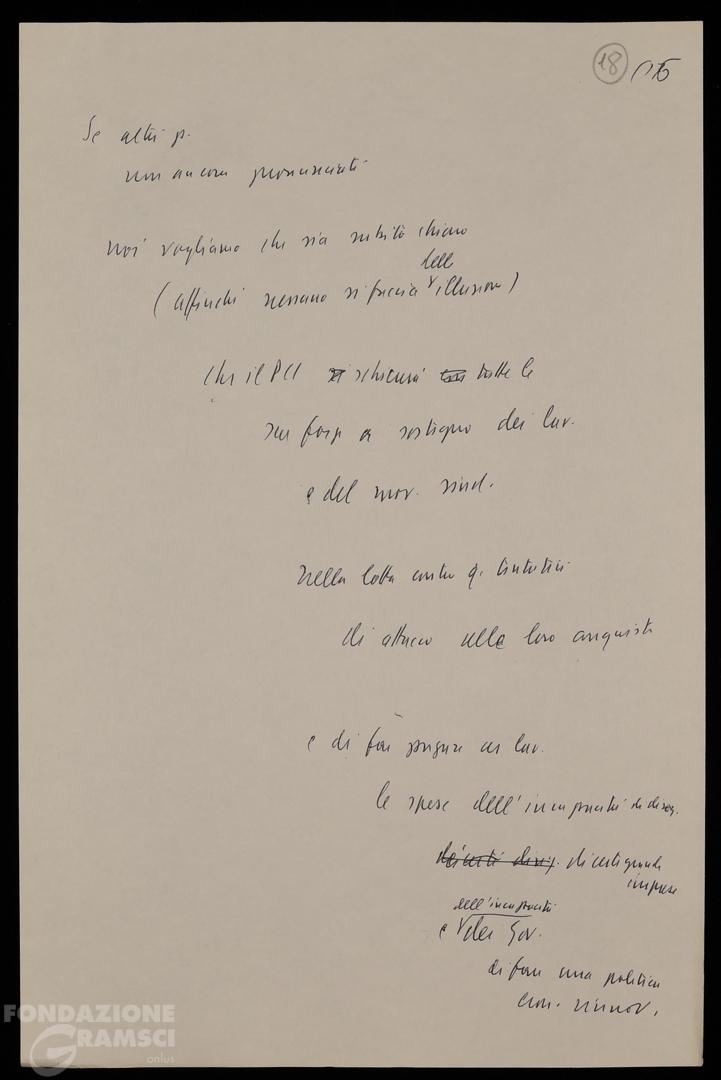 18
Se altri p.
non ancora pronunciati
noi vogliamo che sia subito chiaro
dell
(affinché nessuno si faccia illusioni)
che il PCI schiererà tutte le
sue forze a sostegno dei lav.
e del mov. sind.
nella lotta contro q. tentativi
di attacco alle loro conquiste
e di far pagare ai lav.
le spese dell'incapacità di dirig.
dei certi dirig. di certi grandi
imprese
dell'incapacità
e dei Gov.
di fare una politica
econ. rinnov.
FONDAZIONE
GRAMSCI
onlus